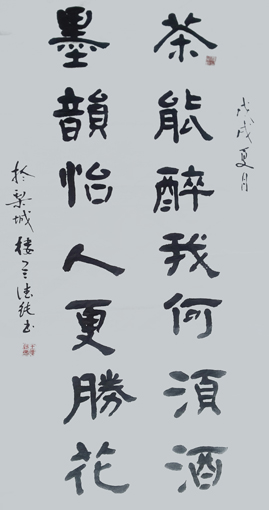 茶能醉我何須酒
戊戌夏月
墨韻怡人更勝花
於梨城樓蘭德純書